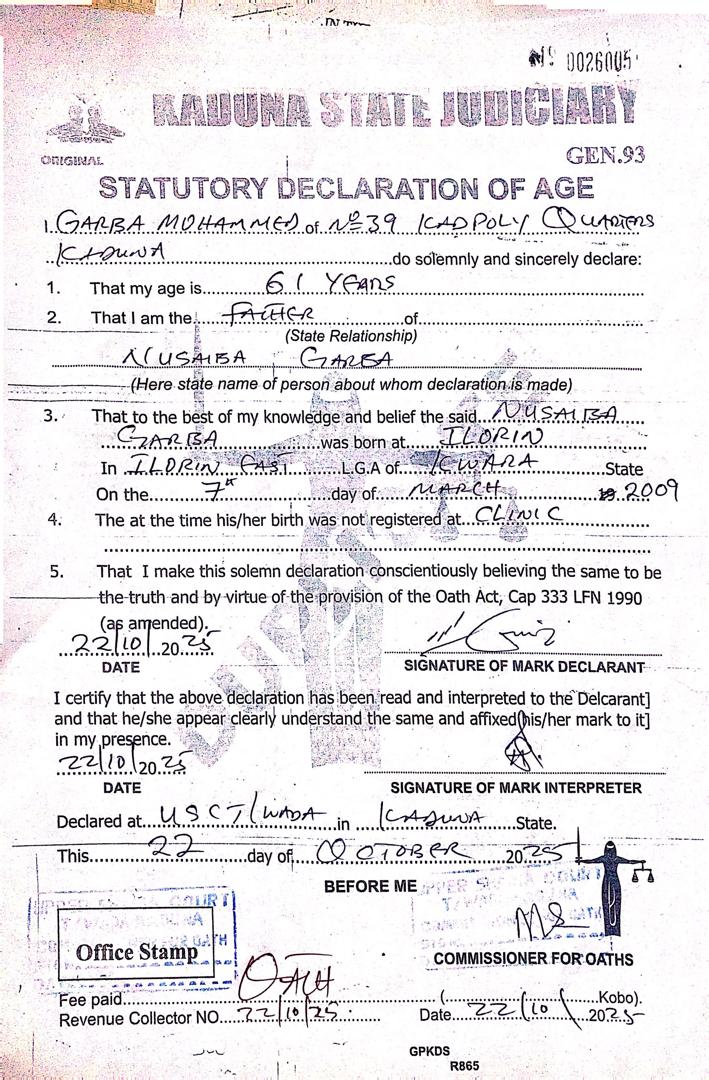 Nº 0026005
KADUNA STATE JUDICIARY
ORIGINAL
GEN.93
STATUTORY DECLARATION OF AGE
I. GARBA MOHAMMED of Nº 39 KADPOLY QUARTERS
KADUNA do solemnly and sincerely declare:
1. That my age is 61 YEARS
2. That I am the FATHER of
(State Relationship)
NUSAIBA GARBA
(Here state name of person about whom declaration is made)
3. That to the best of my knowledge and belief the said NUSAIBA
GARBA was born at ILORIN
In ILORIN EAST L.G.A of KWARA State
On the 7th day of MARCH 19 2009
4. The at the time his/her birth was not registered at CLINIC
5. That I make this solemn declaration conscientiously believing the same to be
the truth and by virtue of the provision of the Oath Act, Cap 333 LFN 1990
(as amended).
22/10/2025
DATE
SIGNATURE OF MARK DECLARANT
I certify that the above declaration has been read and interpreted to the Delcarant]
and that he/she appear clearly understand the same and affixed his/her mark to it]
in my presence.
22/10/2025
DATE
SIGNATURE OF MARK INTERPRETER
Declared at USC T/WADA in KADUNA State.
This 22 day of OCTOBER 2025
BEFORE ME
UPPER SHARIA COURT
T/WADA KADUNA
Office Stamp
COMMISSIONER FOR OATHS
OATH
Fee paid (Kobo).
Revenue Collector NO. 22/10/25 Date 22/10/2025
GPKDS
R865
DUPLICATE